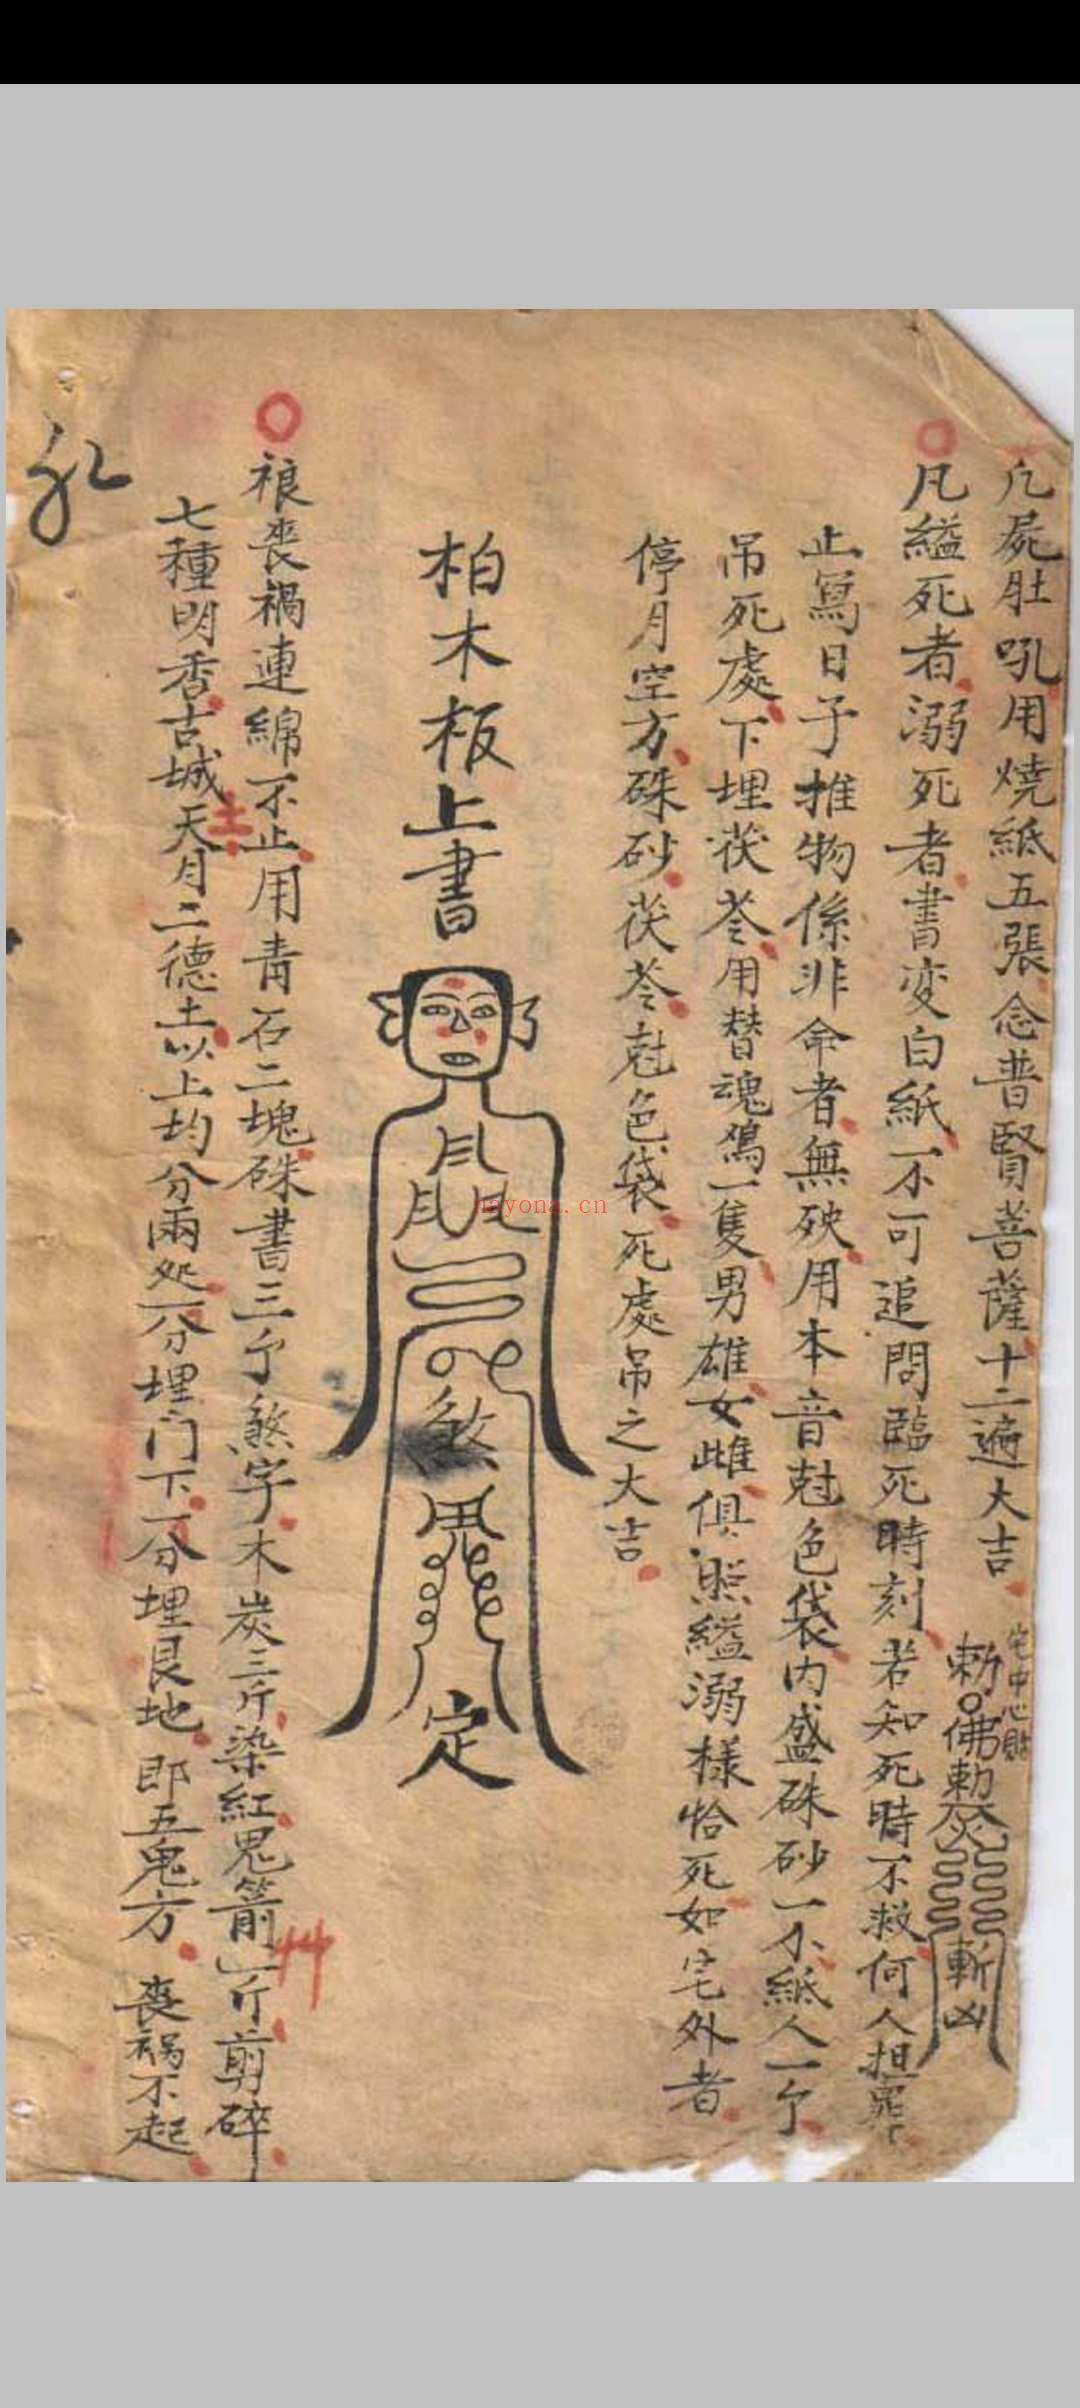 凡屍肚吼用燒紙五張念普賢菩薩十二遍大吉
宅中心貼
勅令佛勅
斬凶
凡縊死者溺死者書变白紙不可追問臨死時刻若知死時不救何人担罪
止寫日子推物係非命者無殃用本音尅色袋內盛硃砂一个紙人一个
吊死處下埋茯苓用替魂鳮一隻男雄女雌俱照縊溺様恰死如宅外者
停月空方硃砂茯苓尅色袋死處吊之大吉
柏木板上書
月月月
煞
鬼
定
禳喪禍連綿不止用青石二塊硃書三个煞字木炭三斤染紅鬼箭一斤剪碎
七種明香古城土天月二德土以上均分兩処一分埋门下一分埋艮地即五鬼方 喪禍不起
nayona.cn